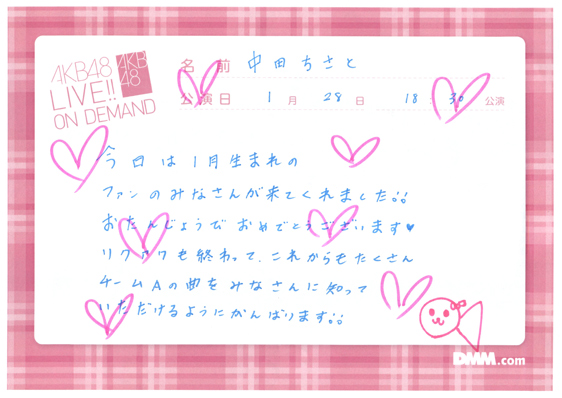 AKB48
LIVE!!
ON DEMAND
AKB
48
名 前 中田ちさと
公演日 1月 28日 18:30 公演
今日は1月生まれの
ファンのみなさんが来てくれました!!
おたんじょうびおめでとうございます♥
リクアワも終わって、これからもたくさん
チームAの曲をみなさんに知って
いただけるようにがんばります!!
DMM.com